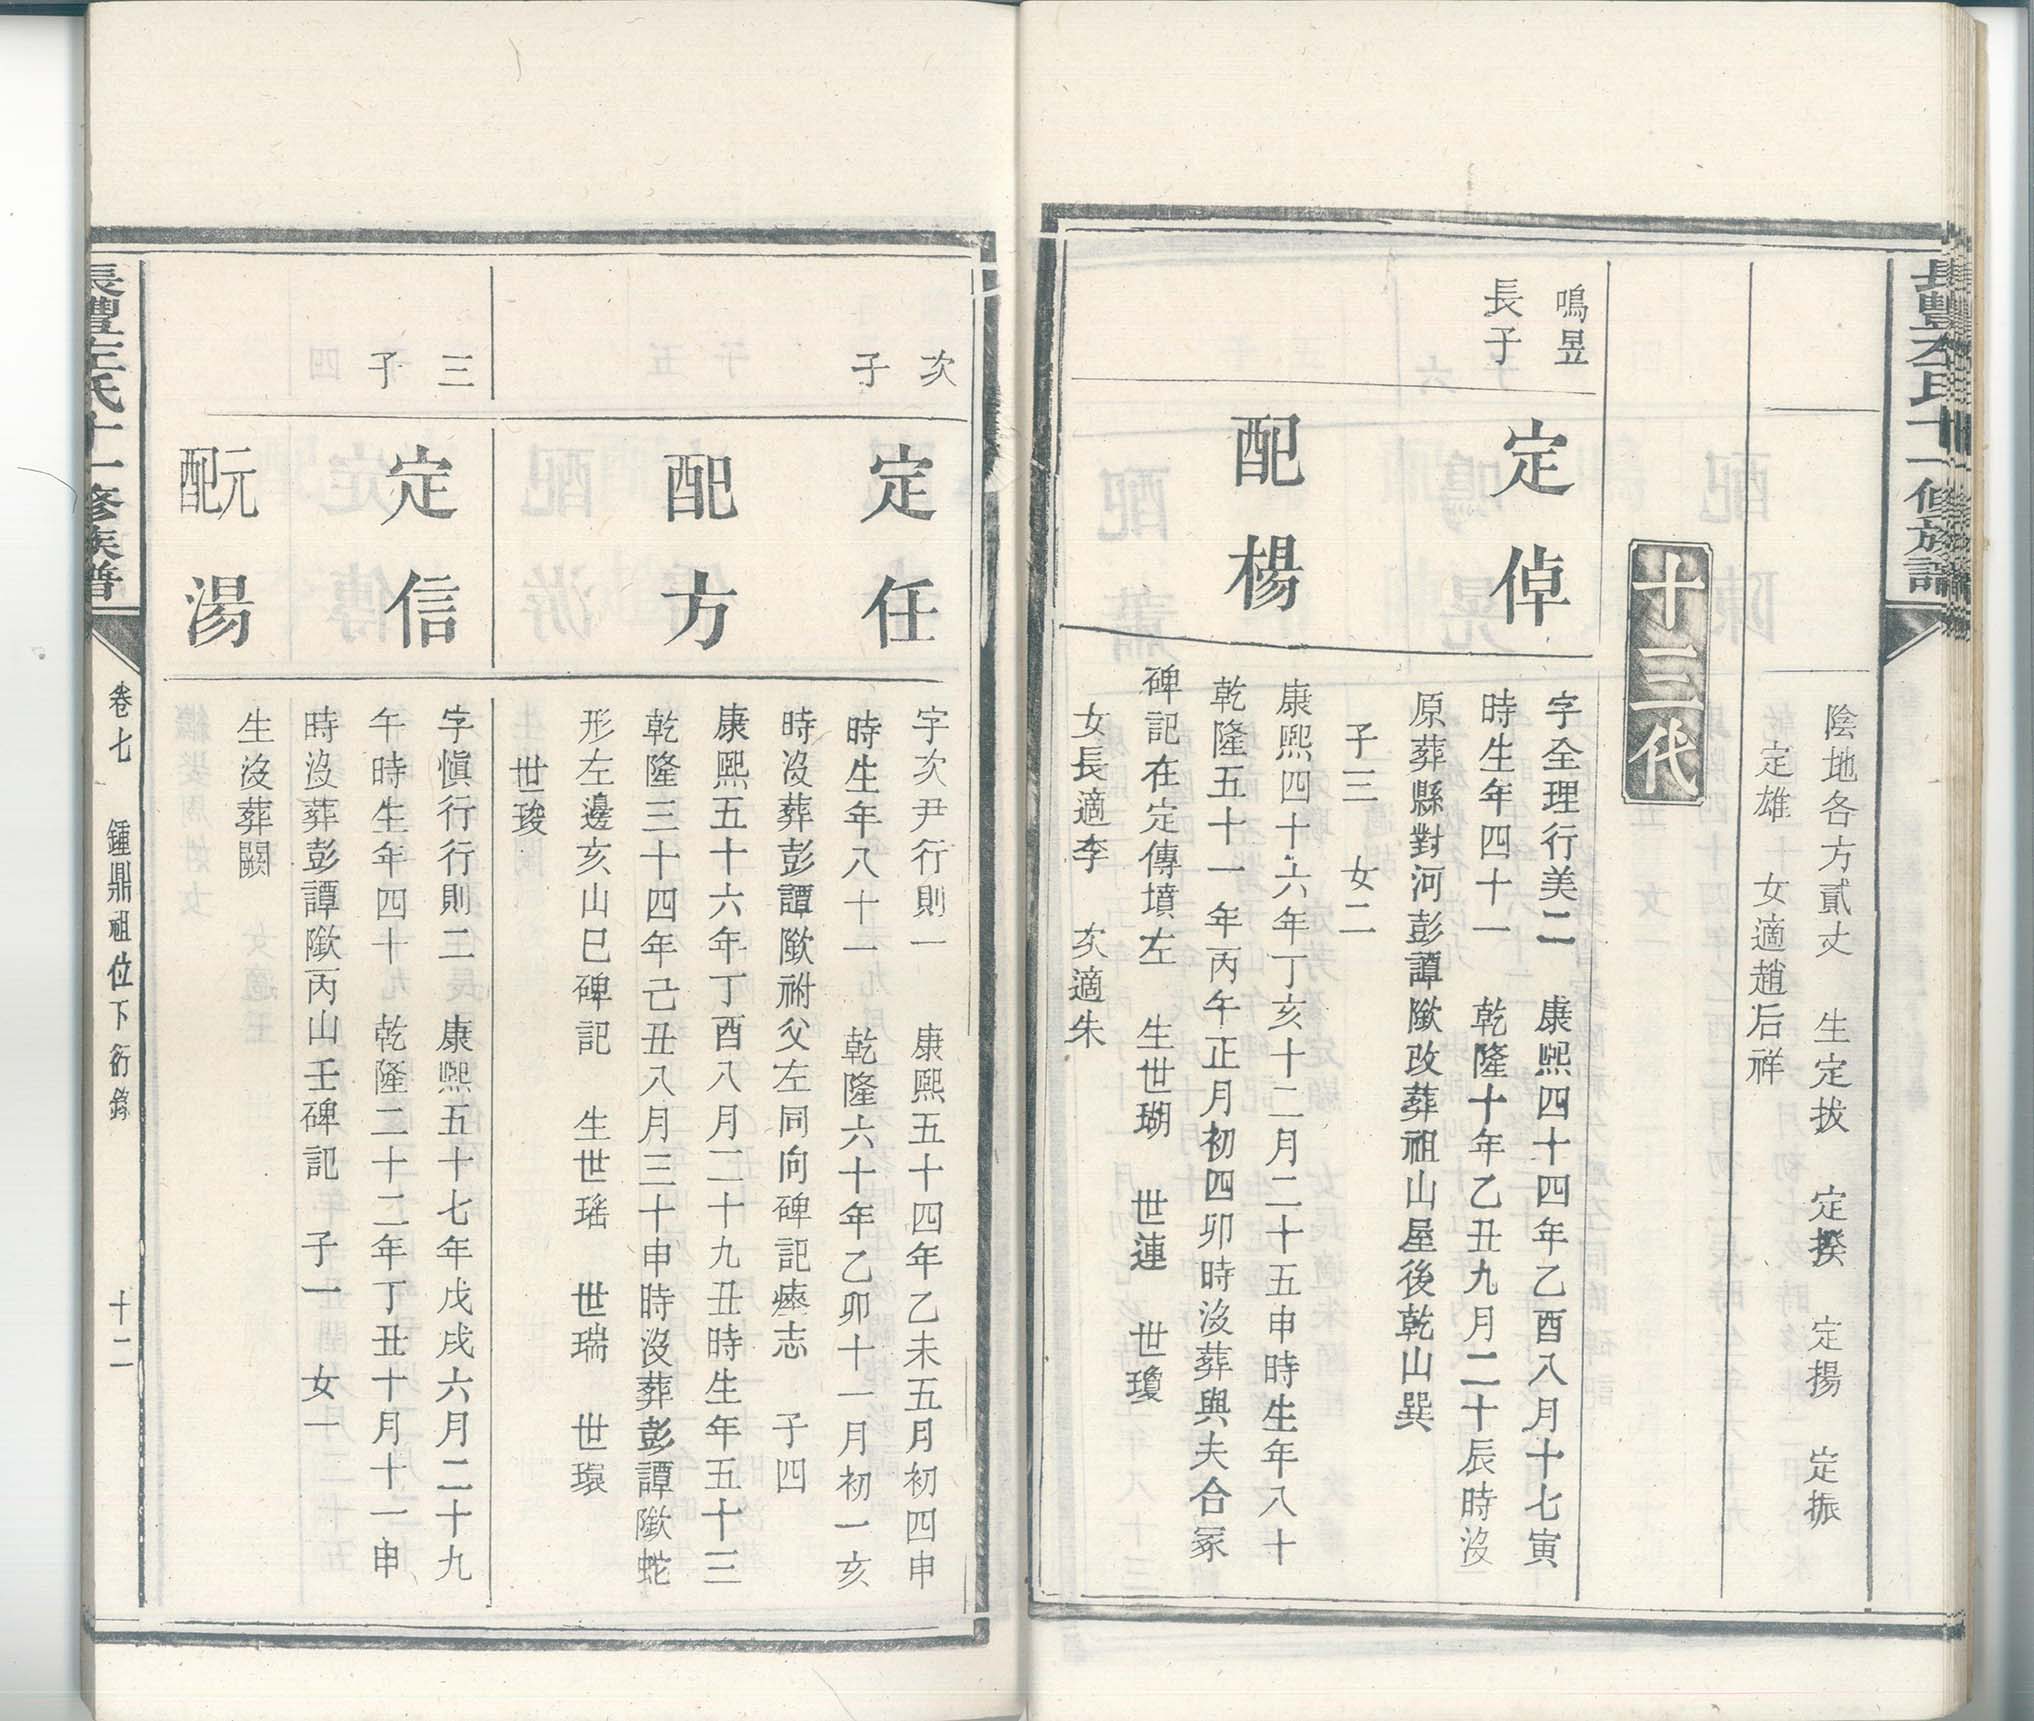 長豐左氏十一修族譜
陰地各方貳丈 生定拔 定揆 定揚 定振
定雄 女適趙后祥
十三代
鳴昱
長子
定倬
字全理行美二 康熙四十四年乙酉八月十七寅
時生年四十一 乾隆十年乙丑九月二十辰時沒
原葬縣對河彭譚墩改葬祖山屋後乾山巽
子三 女二
配楊
康熙四十六年丁亥十二月二十五申時生年八十
乾隆五十一年丙午正月初四卯時沒葬與夫合冢
碑記在定傳墳左 生世瑚 世璉 世瓊
女長適李 次適朱
次
子
定任
字次尹行則一 康熙五十四年乙未五月初四申
時生年八十一 乾隆六十年乙卯十一月初一亥
時沒葬彭譚墩祔父左同向碑記瘞志 子四
配方
康熙五十六年丁酉八月二十九丑時生年五十三
乾隆三十四年己丑八月三十申時沒葬彭譚墩蛇
形左邊亥山巳碑記 生世瑤 世瑞 世環
世璇
三
子
定信
字慎行行則二 康熙五十七年戊戌六月二十九
午時生年四十 乾隆二十二年丁丑十月十一申
時沒葬彭譚墩丙山壬碑記 子一 女一
元配湯
生沒葬闕
長豐左氏十一修族譜
卷七 鍾鼎祖位下衍錄 十二